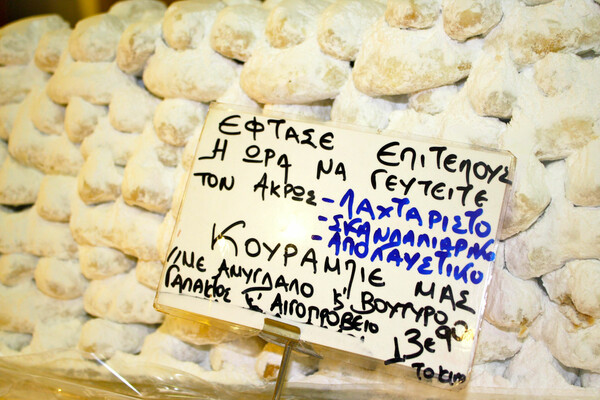 ΕΦΤΑΣΕ ΕΠΙΤΕΛΟΥΣ
Η ΩΡΑ ΝΑ ΓΕΥΤΕΙΤΕ
ΤΟΝ ΑΚΡΩΣ - ΛΑΧΤΑΡΙΣΤΟ
- ΣΚΑΝΔΑΛΙΑΡΙΚΟ
- ΑΠΟΛΑΥΣΤΙΚΟ
ΚΟΥΡΑΜΠΙΕ ΜΑΣ
"ΜΕ ΑΜΥΓΔΑΛΟ Κ' ΒΟΥΤΥΡΟ
ΓΑΛΑΚΤΟΣ Κ' ΑΙΓΟΠΡΟΒΕΙΟ
13€90
ΤΟ ΚΙΛ